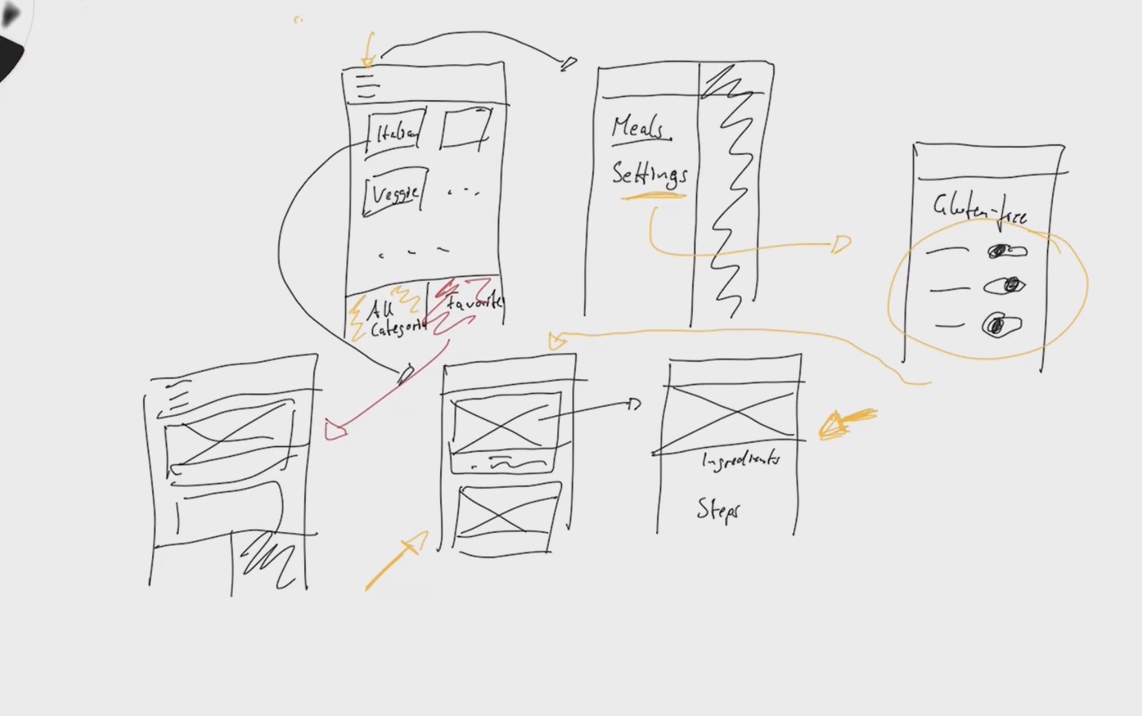 Italian
Veggie
All
Categori
Favorite
Meals
Settings
Gluten-free
Ingredients
Steps